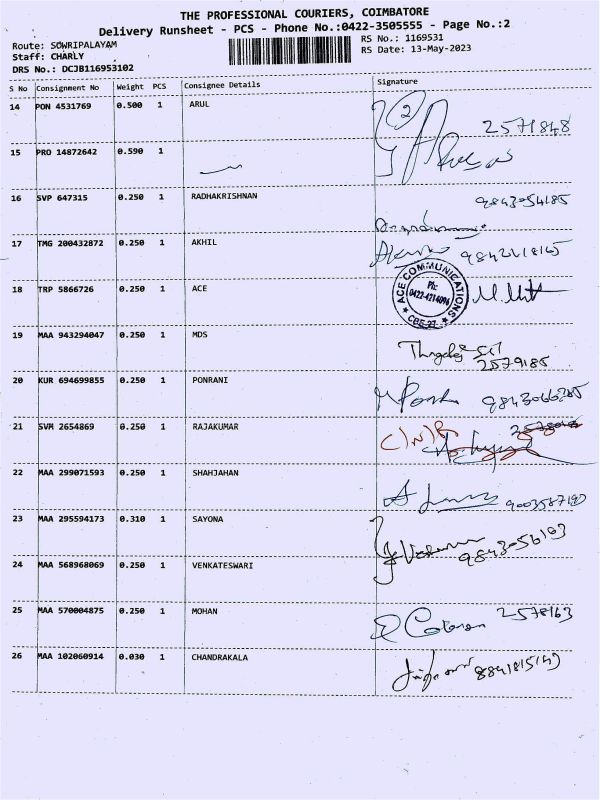 THE PROFESSIONAL COURIERS, COIMBATORE
Delivery Runsheet - PCS - Phone No.:0422-3505555 - Page No.:2
Route: SOWRIPALAYAM
RS No.: 1169531
Staff: CHARLY
RS Date: 13-May-2023
DRS No.: DCJB116953102
S No Consignment No Weight PCS Consignee Details Signature
14 PON 4531769 0.500 1 ARUL 2571848
15 PRO 14872642 0.590 1
16 SVP 647315 0.250 1 RADHAKRISHNAN
17 TMG 200432872 0.250 1 AKHIL
18 TRP 5866726 0.250 1 ACE
ACE COMMUNICATIONS
Ph:
0422-4214094
CBE-27
19 MAA 943294047 0.250 1 MDS
2579185
20 KUR 694699855 0.250 1 PONRANI
21 SVM 2654869 0.250 1 RAJAKUMAR
22 MAA 299071593 0.250 1 SHAHJAHAN
23 MAA 295594173 0.310 1 SAYONA
24 MAA 568968069 0.250 1 VENKATESWARI
25 MAA 570004875 0.250 1 MOHAN 2578163
26 MAA 102060914 0.030 1 CHANDRAKALA